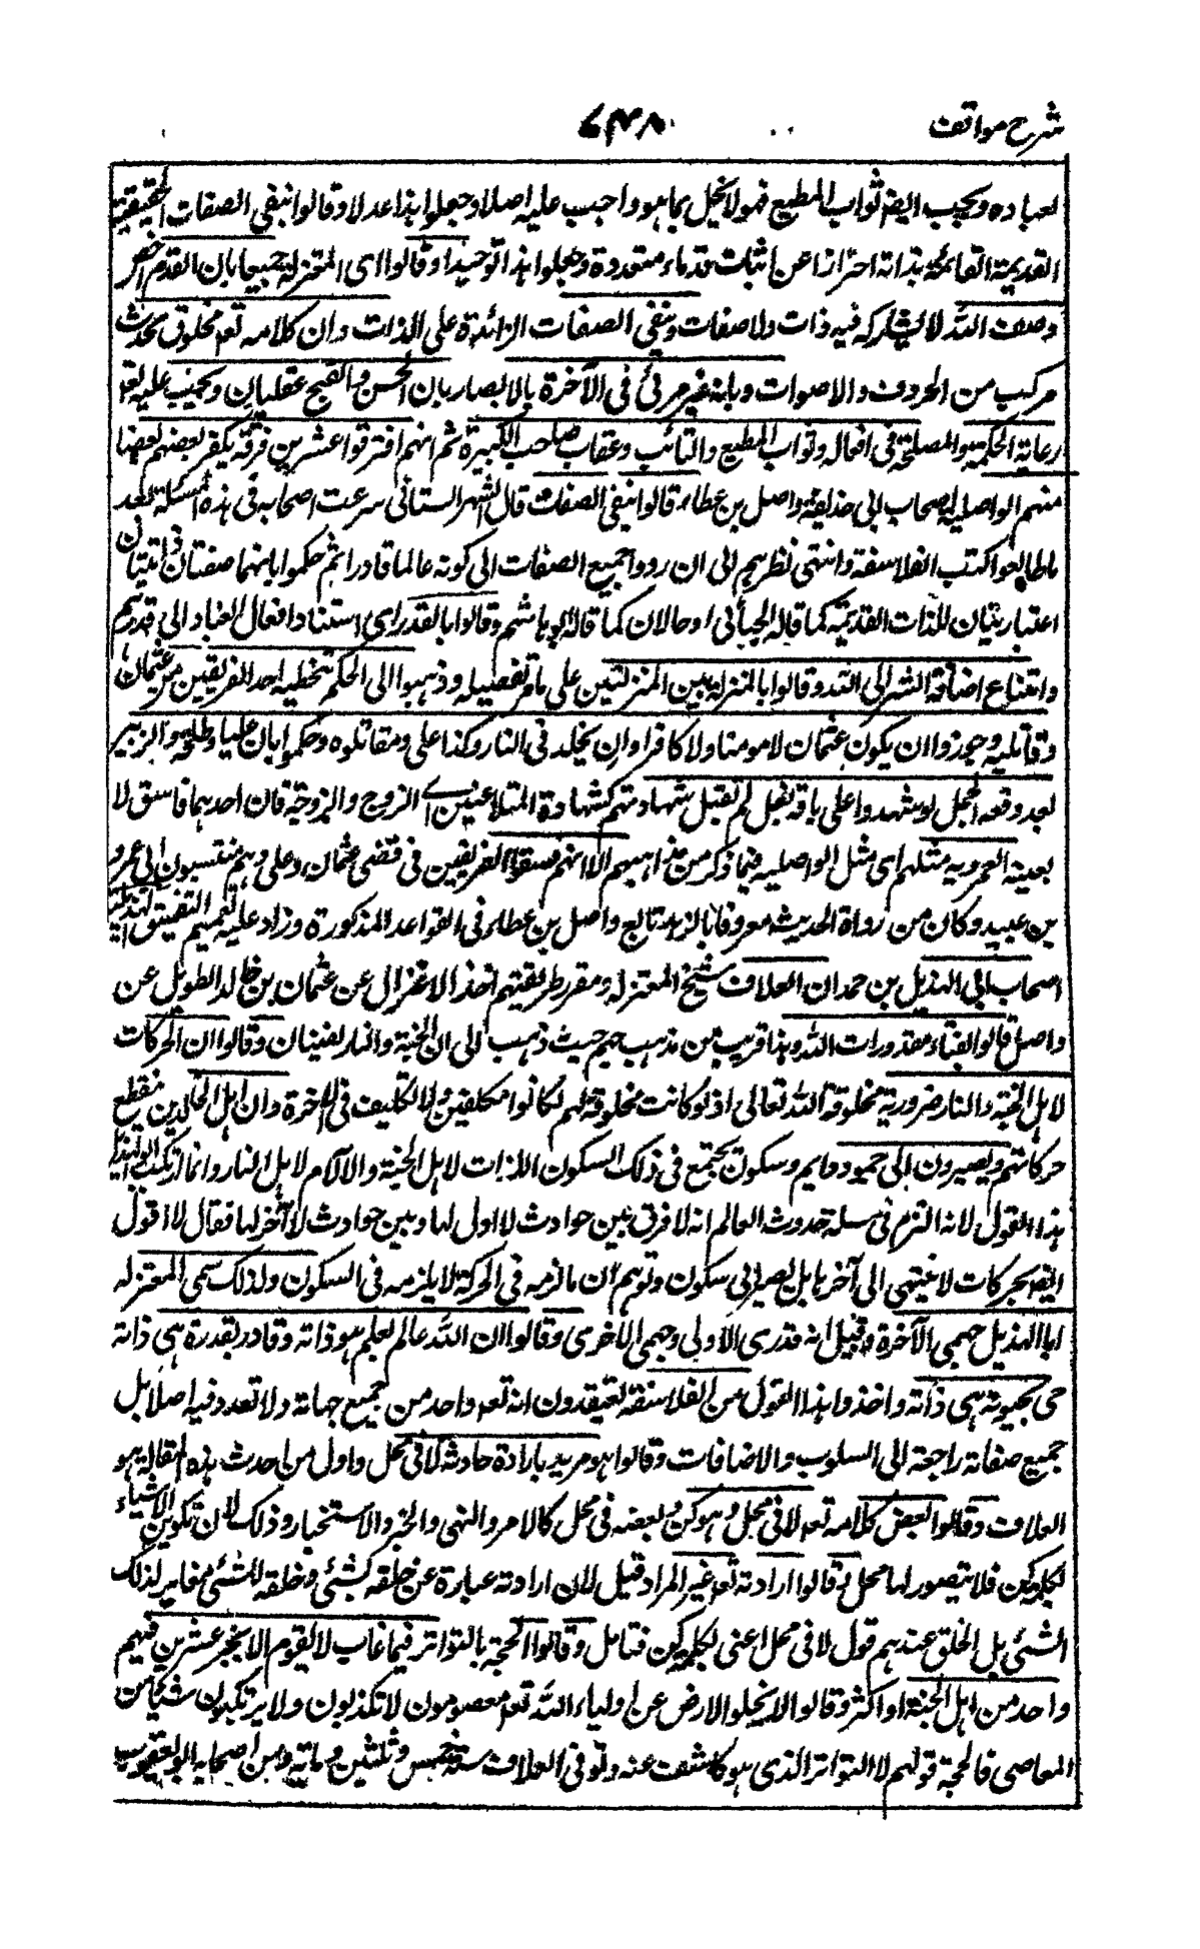 شرح مواقف ۷۴۸
لعباده ويجب ايضا ثواب المطيع فهو لا يخل بما هو واجب عليه اصلا وجعلوا هذا عدلا وقالوا بنفي الصفات الحقيقية
القديمة القائمة بذاته احترازا عن اثبات قدماء متعددة وجعلوا هذا توحيدا وقالوا اى المعتزلة جميعا بان القدم اخص
وصف الله لا يشاركه فيه ذات ولا صفات وبنفي الصفات الزائدة على الذات وان كلامه تعه مخلوق محدث
مركب من الحروف والاصوات وبانه غير مرئي في الآخرة بالابصار بان الحسن والقبح عقليان ويجب عليه تعه
رعاية الحكمة والمصلحة في افعاله وثواب المطيع والتائب وعقاب صاحب الكبيرة ثم انهم افترقوا عشرين فرقة يكفر بعضهم بعضا
منهم الواصلية اصحاب ابي حذيفة واصل بن عطاء قالوا بنفي الصفات قال الشهرستاني سرعت اصحابه في هذه المسئلة بعد
ما طالعوا كتب الفلاسفة وانتهى نظرهم الى ان ردوا جميع الصفات الى كونه عالما قادرا ثم حكموا بانهما صفتان ذاتيتان
اعتباريتان للذات القديمة كما قاله الجبائي او حالان كما قاله ابو هاشم وقالوا بالقدر اى استناد افعال العباد الى قدرهم
وامتناع اضافة الشر الى الله وقالوا بالمنزلة بين المنزلتين على ما مر تفصيله وذهبوا الى الحكم بتخطية احد الفريقين من عثمان
وقاتليه وجوزوا ان يكون عثمان لا مومنا ولا كافرا وان يخلد في النار وكذا على ومقاتلوه وحكموا بان عليا وطلحة والزبير
بعد وقعة الجمل لو شهدوا على باقة بقل لم تقبل شهادتهم كشهادة المتلاعنين اے الزوج والزوجة فان احدهما فاسق لا
بعينه العمروية مثلهم اى مثل الواصلية فيما ذكر من مذاهبهم الا انهم فسقوا الفريقين في قضى عثمان وعلى وهم منتسبون الى عمرو
بن عبيد وكان من رواة الحديث معروفا بالزهد تابع واصل بن عطاء في القواعد المذكورة وزاد عليه تعميم التفسيق الهذيلية
اصحاب ابي الهذيل بن حمدان العلاف شيخ المعتزلة ومقرر طريقتهم اخذ الاعتزال عن عثمان بن خالد الطويل عن
واصل قالوا بفناء مقدورات الله وهذا قريب من مذهب جهم حيث ذهب الى ان الجنة والنار تفنيان وقالوا ان الحركات
لاهل الجنة والنار ضرورية مخلوقة الله تعالى اذ لو كانت مخلوقة لهم لكانوا مكلفين ولا تكليف في الآخرة وان اهل الخالدين ينقطع
حركاتهم ويصيرون الى خمود دايم وسكون يجتمع في ذلك السكون اللذات لاهل الجنة والآلام لاهل النار وانما ارتكب ابو الهذيل
هذا القول لانه التزم في مسلة حدوث العالم انه لا فرق بين حوادث لا اول لها وبين حوادث لا آخر لها فقال لا اقول
ايضا بحركات لا ينتهي الى آخر بل يصير الى سكون وتوهم ان ما لزمه في الحركة لا يلزمه في السكون ولذلك سمى المعتزلة
ابا الهذيل جهمي الآخرة وقيل انه قدرى الاولى وجهمي الاخرى وقالوا ان الله عالم بعلم هو ذاته وقادر بقدرة هي ذاته
حي بحيوة هي ذاته واخذوا هذا القول من الفلاسفة يعتقدون انه تعه واحد من جميع جهاته ولا تعدد فيه اصلا بل
جميع صفاته راجعة الى السلوب والاضافات وقالوا هو مريد بارادة حادثة لا في محل واول من احدث هذه المقالة هو
العلاف وقالوا بعض كلامه تعه لا في محل وهو كن وبعضه في محل كالامر والنهي والخبر والاستخبار وذلك لان تكوين الاشياء
بكلمة كن فلا يتصور لها محل وقالوا ارادته تعه غير المراد قيل لان ارادته عبارة عن خلقه لشئي وخلقه للشئي مغاير لذلك
الشئي بل الخلق عندهم قول لا في محل اعنى بكلمة كن فتامل وقالوا الحجة بالتواتر فيما غاب لا يقوم الا بخبر عشرين فيهم
واحد من اهل الجنة او اكثر وقالوا لا يخلو الارض عن اولياء الله تعه معصومون لا يكذبون ولا يرتكبون شيئا من
المعاصي فالحجة قولهم لا التواتر الذى هو كاشف عنه وتوفي العلاف سنة خمس وثلثين ومائة ومن اصحابه ابو يعقوب